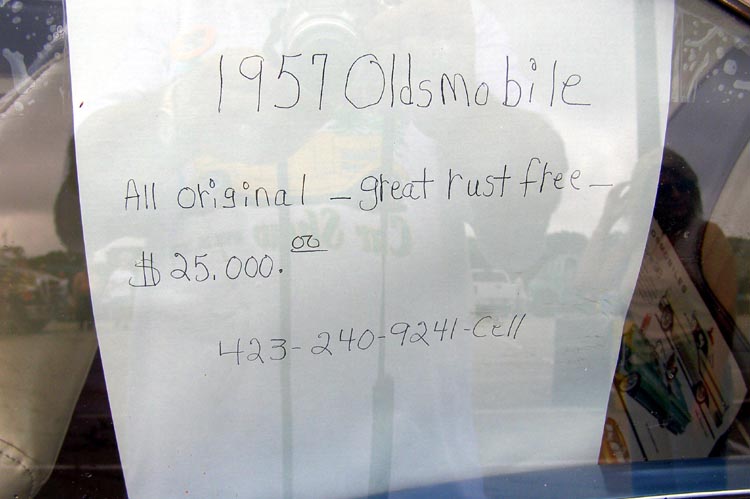 1957 Oldsmobile
All original – great rust free –
$25.000.00
423-240-9241-Cell